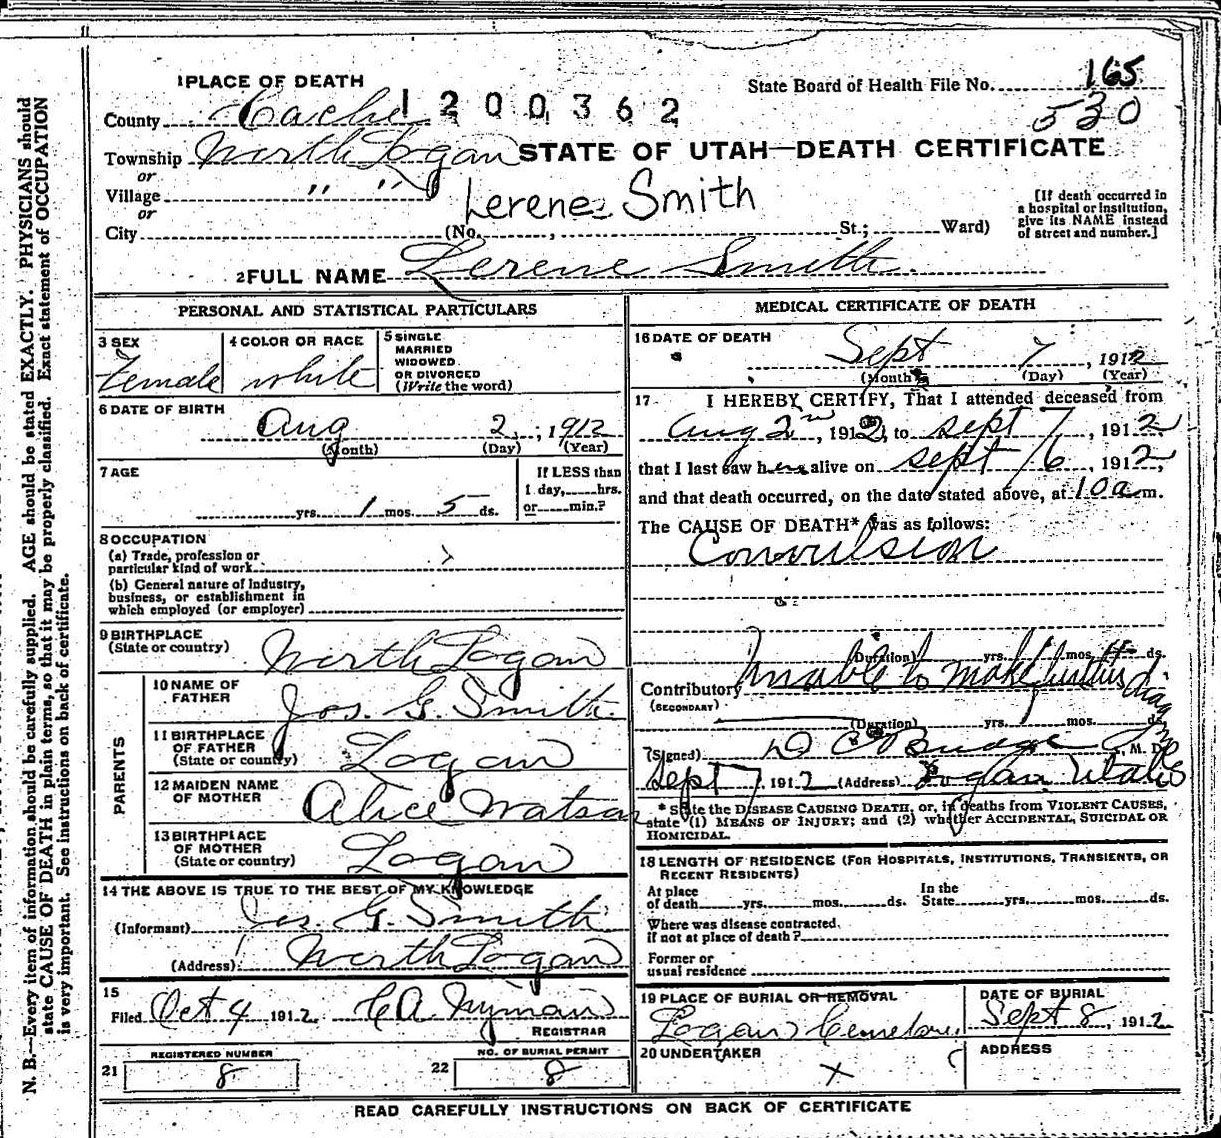 1 PLACE OF DEATH
State Board of Health File No. 165
County Cache 1200362
530
Township North Logan STATE OF UTAH—DEATH CERTIFICATE
or
Village " "
Lerene Smith
or
City (No. , St.; Ward)
[If death occurred in
a hospital or institution,
give its NAME instead
of street and number.]
2 FULL NAME Lerene Smith.
PERSONAL AND STATISTICAL PARTICULARS
3 SEX
Female
4 COLOR OR RACE
white
5 SINGLE
MARRIED
WIDOWED
OR DIVORCED
(Write the word)
6 DATE OF BIRTH
Aug 2, 1912
(Month) (Day) (Year)
7 AGE
yrs. 1 mos. 5 ds.
If LESS than
1 day, hrs.
or min.?
8 OCCUPATION
(a) Trade, profession or
particular kind of work
(b) General nature of industry,
business, or establishment in
which employed (or employer)
9 BIRTHPLACE
(State or country)
North Logan
PARENTS
10 NAME OF
FATHER
Jos. G. Smith.
11 BIRTHPLACE
OF FATHER
(State or country)
Logan
12 MAIDEN NAME
OF MOTHER
Alice Watson
13 BIRTHPLACE
OF MOTHER
(State or country)
Logan
14 THE ABOVE IS TRUE TO THE BEST OF MY KNOWLEDGE
(Informant) Jos G. Smith
(Address) North Logan
15
Filed Oct 4 1912 C A Nyman
REGISTRAR
REGISTERED NUMBER
21 8
NO. OF BURIAL PERMIT
22 8
MEDICAL CERTIFICATE OF DEATH
16 DATE OF DEATH
Sept 7, 1912
(Month) (Day) (Year)
17 I HEREBY CERTIFY, That I attended deceased from
Aug 2nd, 1912, to Sept 7, 1912,
that I last saw her alive on Sept 6, 1912,
and that death occurred, on the date stated above, at 10 a m.
The CAUSE OF DEATH* was as follows:
Convulsion
(Duration) yrs. mos. ds.
Contributory Unable to make further diagnose
(SECONDARY)
(Duration) yrs. mos. ds.
(Signed) D C Budge, M. D.
Sept 7, 1912 (Address) Logan Utah
* State the DISEASE CAUSING DEATH, or, in deaths from VIOLENT CAUSES,
state (1) MEANS OF INJURY; and (2) whether ACCIDENTAL, SUICIDAL OR
HOMICIDAL.
18 LENGTH OF RESIDENCE (FOR HOSPITALS, INSTITUTIONS, TRANSIENTS, OR
RECENT RESIDENTS)
At place
of death yrs. mos. ds.
In the
State yrs. mos. ds.
Where was disease contracted,
if not at place of death?
Former or
usual residence
19 PLACE OF BURIAL OR REMOVAL
Logan Cemetery.
DATE OF BURIAL
Sept 8, 1912
20 UNDERTAKER
X
ADDRESS
READ CAREFULLY INSTRUCTIONS ON BACK OF CERTIFICATE
N. B.—Every item of information should be carefully supplied. AGE should be stated EXACTLY. PHYSICIANS should
state CAUSE OF DEATH in plain terms, so that it may be properly classified. Exact statement of OCCUPATION
is very important. See instructions on back of certificate.